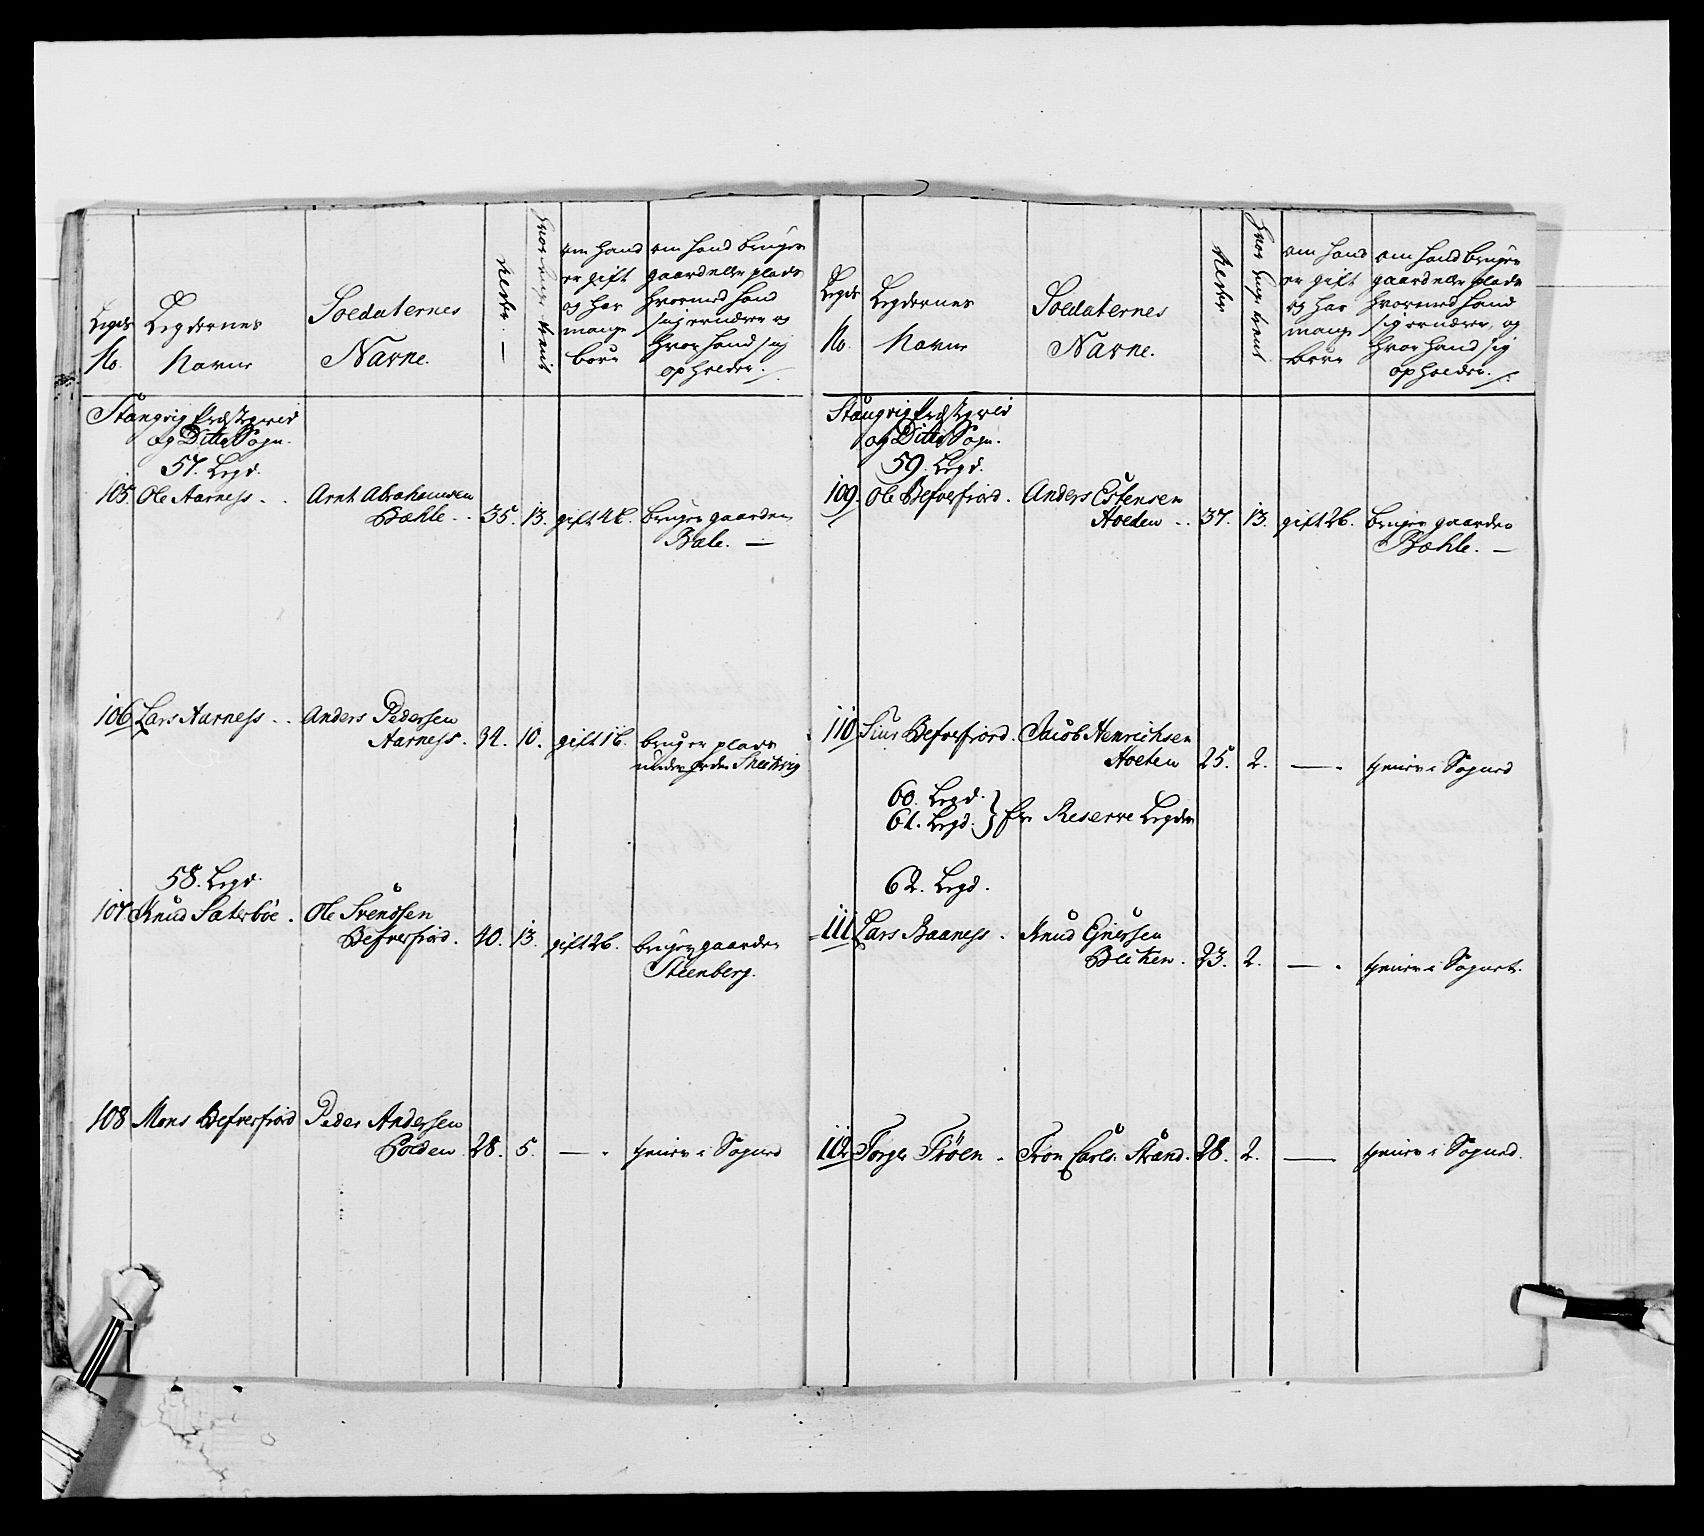 Legds
No.
Legdernes
Navne
Soldaternes
Navne.
Alder.
hvor lenge tient
om hand
er gift
og har
mange
børn
om hand bruger
gaard eller plads
hvormed hand
sig ernærer og
hvor hand sig
opholder.
Stangvig Præstegield
og Ditto Sogn.
57. Legd.
105. Ole Aarness. Arnt Abrahamsen
Bæhle. 35. 13. gift 4 b. bruger gaarden
Bæle.
106 Lars Aarness. Anders Pedersen
Aarness. 34. 10. gift 1 b. bruger plads
under grden
58. Legd.
107 Knud Saterböe. Ole Svendsen
Befverfiord. 40. 13. gift 2 b. bruger gaarden
Steenberg.
108 Mons Befverfiord Peder Andersen
Holden. 28. 5. — tiener i Sognet
Legds
No.
Legdernes
Navne
Soldaternes
Navne.
Alder
hvor lenge tient
om hand
er gift
og har
mange
børn
om hand bruger
gaard eller plads
hvormed hand
sig ernærer, og
hvor hand sig
opholder.
Stangvig Præstegield
og Ditto Sogn.
59. Legd.
109. Ole Befverfiord. Anders Estensen
Holten 37. 13. gift 2 b. bruger gaarden
Bæhle.
110 Siur Befverfiord. Jacob Henrichsen
Holten 25. 2. — tiener i Sognet
60. Legd.
61. Legd. } er Reserve Legder
62. Legd.
111 Lars Baaness. Knud Ejnersen
Bliken. 23. 2. — tiener i Sognet.
112 Torger Tröen. Tron Carls. Strand. 28. 2. — tiener i Sognet.